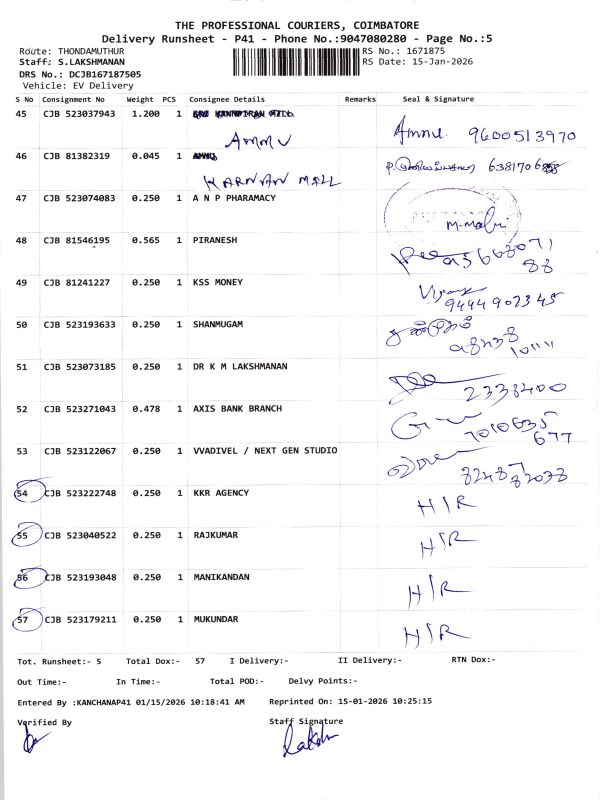 THE PROFESSIONAL COURIERS, COIMBATORE
Delivery Runsheet - P41 - Phone No.:9047080280 - Page No.:5
Route: THONDAMUTHUR RS No.: 1671875
Staff: S.LAKSHMANAN RS Date: 15-Jan-2026
DRS No.: DCJB167187505
Vehicle: EV Delivery
S No Consignment No Weight PCS Consignee Details Remarks Seal & Signature
45 CJB 523037943 1.200 1 Ammu 9600513970
AMMU
46 CJB 81382319 0.045 1
KARNAN MILL
47 CJB 523074083 0.250 1 A N P PHARAMACY
M.Malni
48 CJB 81546195 0.565 1 PIRANESH
88
49 CJB 81241227 0.250 1 KSS MONEY
9444902345
50 CJB 523193633 0.250 1 SHANMUGAM
51 CJB 523073185 0.250 1 DR K M LAKSHMANAN
2338400
52 CJB 523271043 0.478 1 AXIS BANK BRANCH
7010635
677
53 CJB 523122067 0.250 1 VVADIVEL / NEXT GEN STUDIO
54 CJB 523222748 0.250 1 KKR AGENCY H/R
55 CJB 523040522 0.250 1 RAJKUMAR H/R
56 CJB 523193048 0.250 1 MANIKANDAN H/R
57 CJB 523179211 0.250 1 MUKUNDAR H/R
Tot. Runsheet:- 5 Total Dox:- 57 I Delivery:- II Delivery:- RTN Dox:-
Out Time:- In Time:- Total POD:- Delvy Points:-
Entered By :KANCHANAP41 01/15/2026 10:18:41 AM Reprinted On: 15-01-2026 10:25:15
Verified By Staff Signature
Lakshm